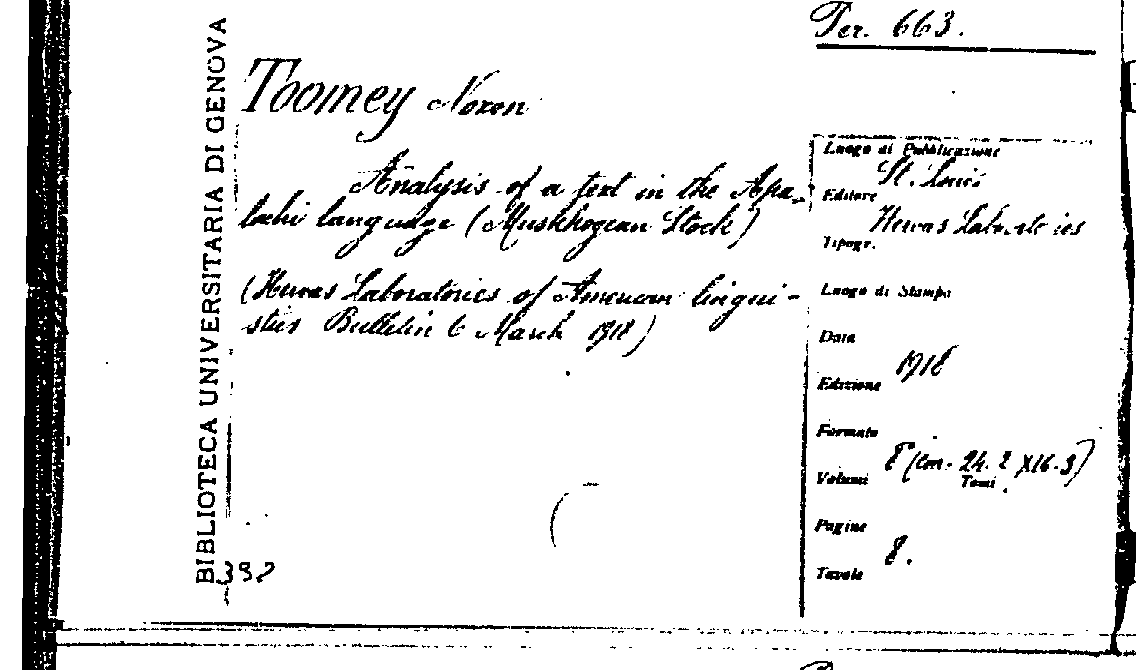 Per. 663.
BIBLIOTECA UNIVERSITARIA DI GENOVA
Toomey Noxon
Analysis of a text in the Apa-
lachi language (Muskhogean Stock)
(Hervas Laboratories of American lingui-
stics Bulletin 6 March 1918)
Luogo di Pubblicazione
St. Louis
Editore
Hervas Laboratories
Tipogr.
Luogo di Stampa
Data
1918
Edizione
Formato
8 (cm. 24.2 X16.3)
Volumi Tomi
Pagine
8.
Tavole
392